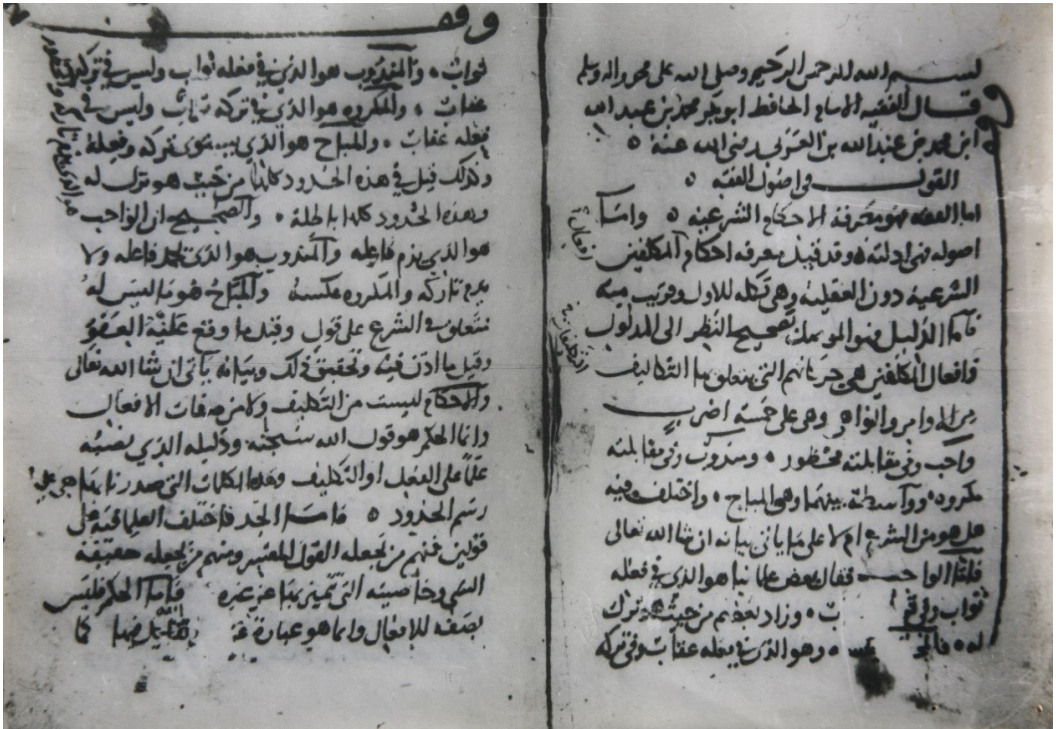 بسم الله الرحمن الرحيم وصلى الله على محمد واله وسلم
قال الفقيه الامام الحافظ ابو بكر محمد بن عبد الله
ابن محمد بن عبد الله بن العربي رضي الله عنه
القول في اصول الفقه
اما الفقه فهو معرفة الاحكام الشرعية واما
اصوله فهي ادلته وقد قيل معرفة احكام افعال المكلفين
الشرعية دون العقلية وهي تكملة للاول وقريب منه
فاما الدليل فهو الموصل بصحيح النظر الى المدلول
وافعال المكلفين هي حركاتهم التي يتعلق بها التكاليف
من الاوامر والنواهي وهي على خمسة اضرب
واجب وفي مقابلته محظور ومندوب وفي مقابلته
مكروه وواسطة بينهما وهي المباح واختلف فيه
هل هو من الشرع ام لا على ما ياتي بيانه ان شا الله تعالى
فاما الواجب فقال بعض علماينا هو الذي في فعله
ثواب وفي وزاد بعضهم من حيث هو ترك
له وهو الذي في فعله عقاب وفي تركه
وقف
ثواب والمندوب هو الذي في فعله ثواب وليس في تركه
عقاب والمكروه هو الذي في تركه ثواب وليس في
فعله عقاب والمباح هو الذي يستوي تركه وفعله
وكذلك قيل في هذه الحدود كلها من حيث هو ترك له
وهذه الحدود كلها باطلة والصحيح ان الواجب
هو الذي يذم تاركه والمحظور
هو الذي يذم فاعله والمندوب هو الذي يحمد فاعله ولا
يذم تاركه والمكروه عكسه والمباح هو ما ليس له
متعلق في الشرع على قول وقيل ما وقع عليه العفو
وقيل ما اذن فيه وتحقيق ذلك وبيانه ياتي ان شا الله تعالى
والاحكام ليست من التكليف ولا من صفات الافعال
وانما الحكم هو قول الله سبحنه ودليله الذي نصبه
علما على الفعل او التكليف وهذه الكلمات التي صدرنا بها هي على
رسم الحدود فاما الحد فاختلف العلما فيه على
قولين فمنهم من يجعله القول المفسر ومنهم من يجعله حقيقة
الشي وخاصيته التي تميز بها عن غيره فاما الحكم فليس
بصفة للافعال وانما هو عبارة